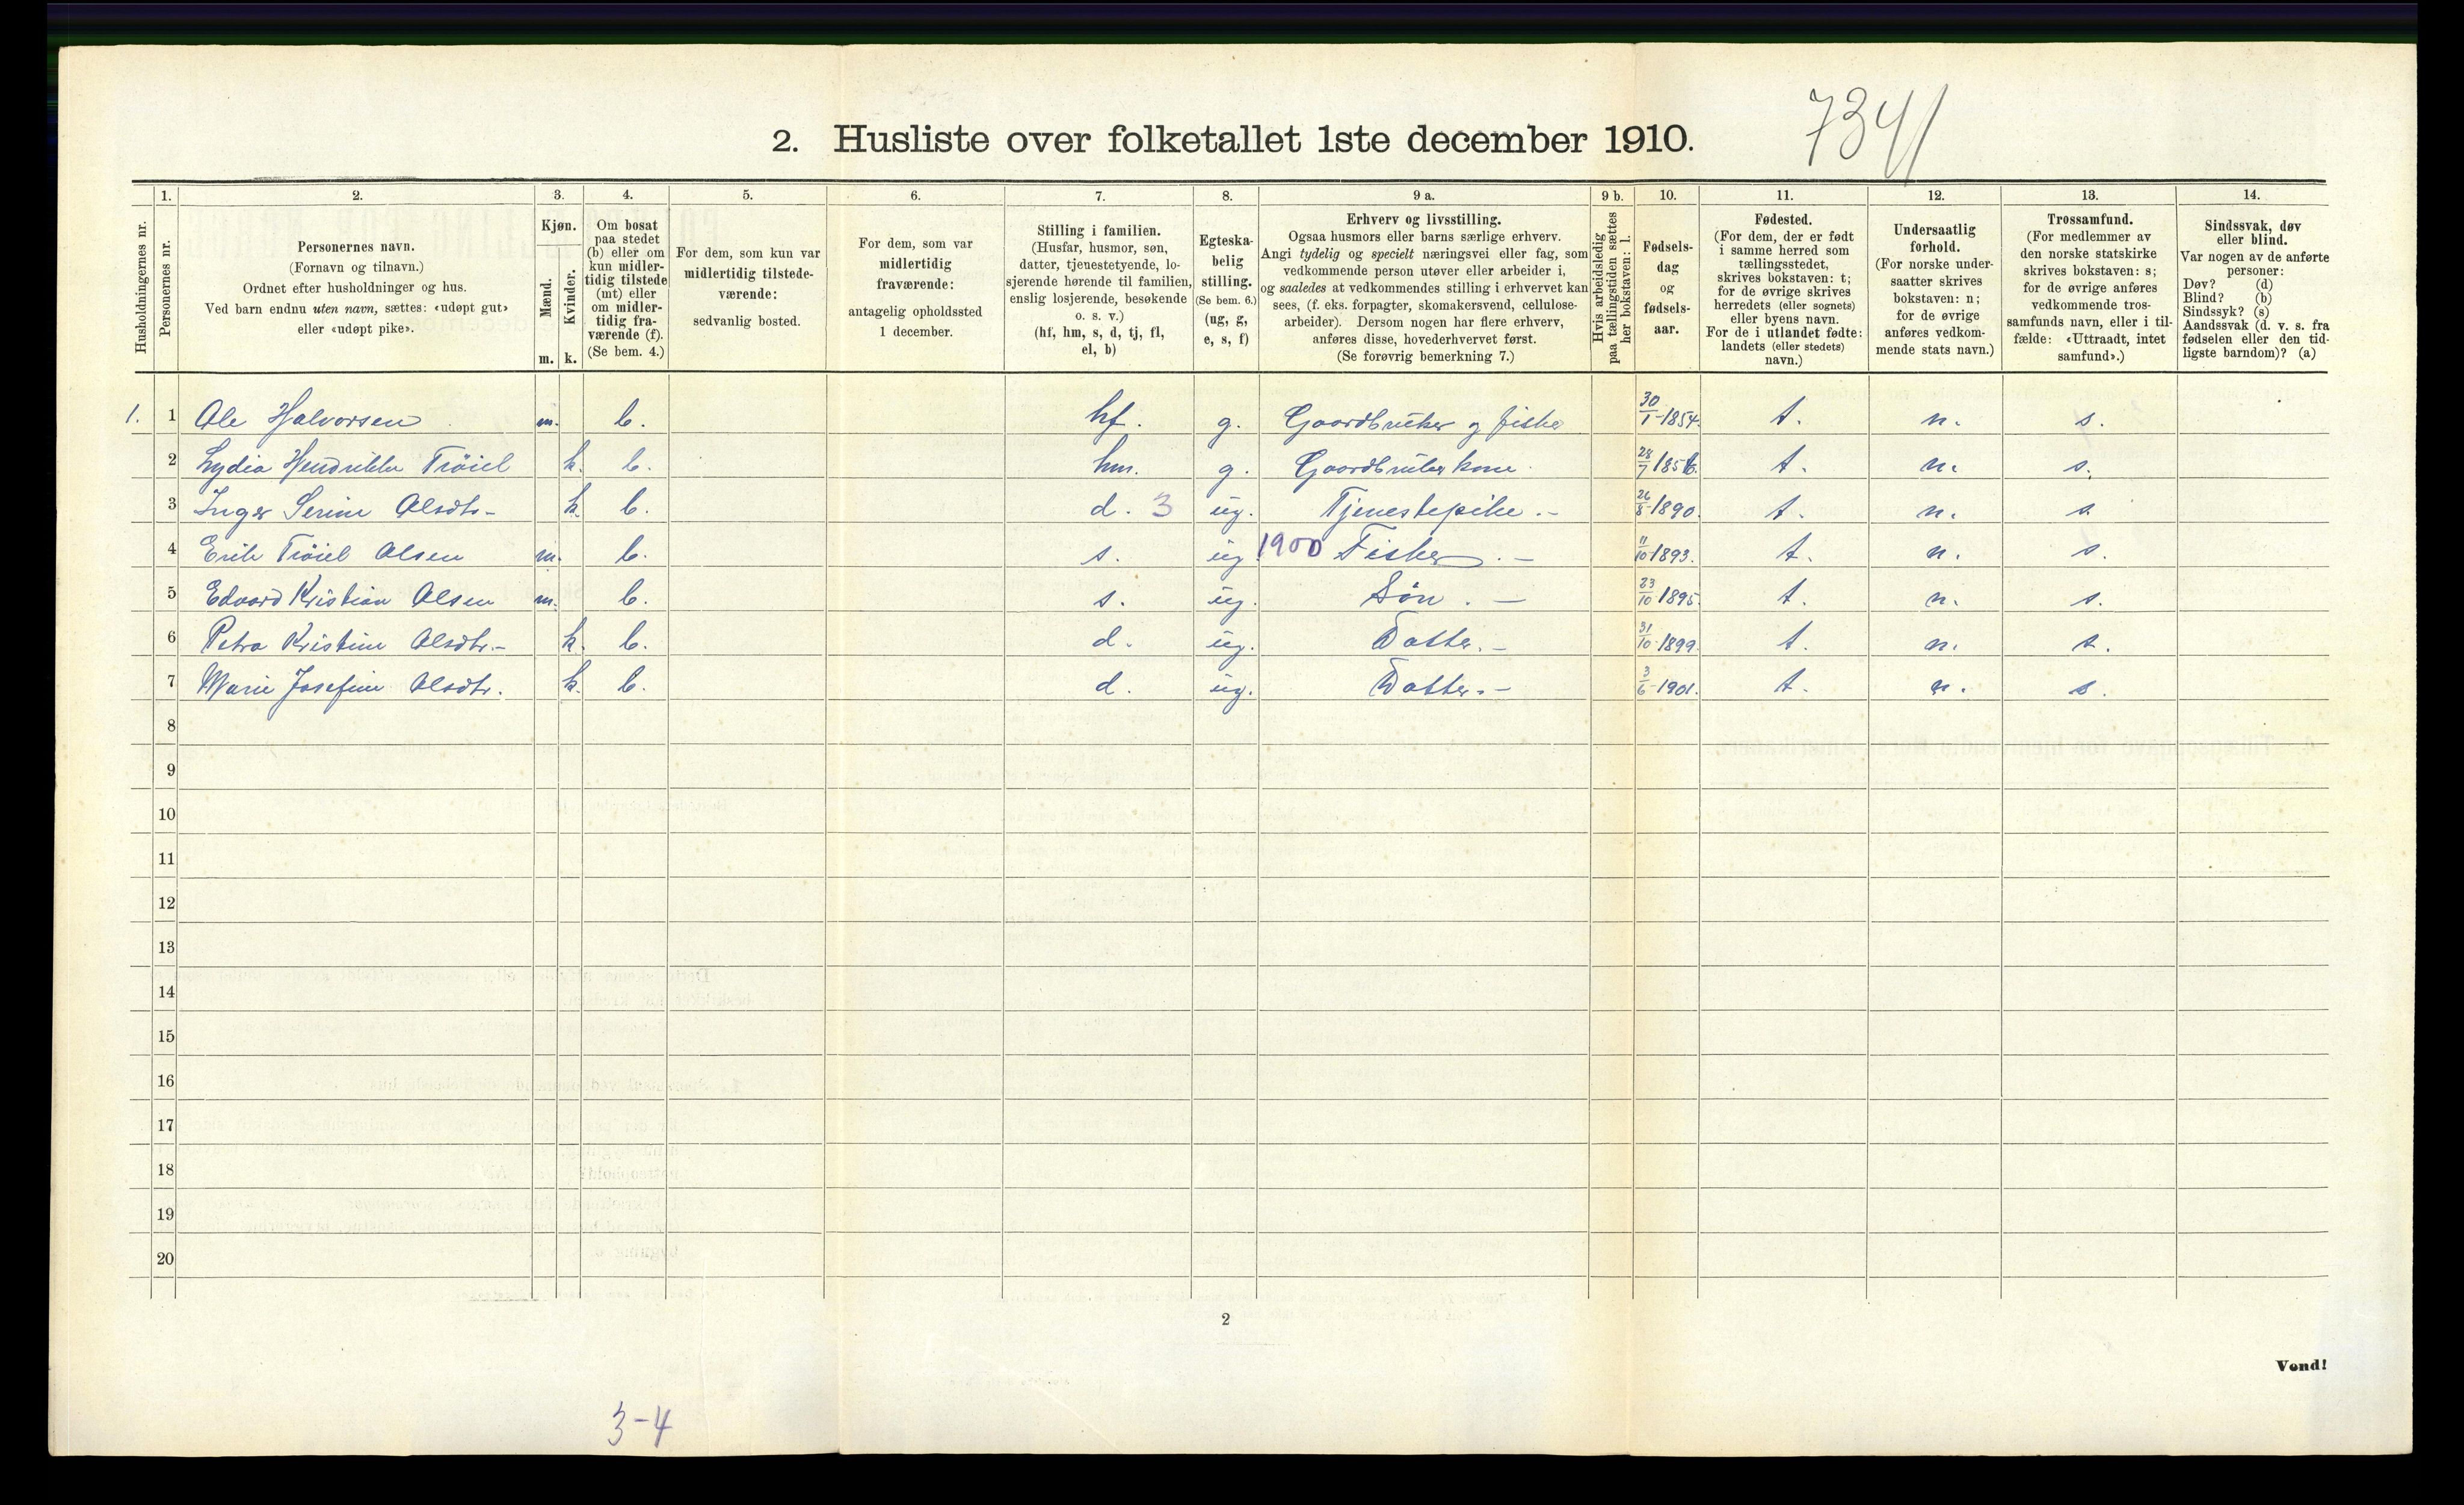 2. Husliste over folketallet 1ste december 1910.
7341
1. 2. 3. 4. 5. 6. 7. 8. 9 a. 9 b. 10. 11. 12. 13. 14.
Husholdningernes nr.
Personernes nr.
Personernes navn.
(Fornavn og tilnavn.)
Ordnet efter husholdninger og hus.
Ved barn endnu uten navn, sættes: «udøpt gut»
eller «udøpt pike».
Kjøn.
Mænd.
Kvinder.
m. k.
Om bosat
paa stedet
(b) eller om
kun midler-
tidig tilstede
(mt) eller
om midler-
tidig fra-
værende (f).
(Se bem. 4.)
For dem, som kun var
midlertidig tilstede-
værende:
sedvanlig bosted.
For dem, som var
midlertidig
fraværende:
antagelig opholdssted
1 december.
Stilling i familien.
(Husfar, husmor, søn,
datter, tjenestetyende, lo-
sjerende hørende til familien,
enslig losjerende, besøkende
o. s. v.)
(hf, hm, s, d, tj, fl,
el, b)
Egteska-
belig
stilling.
(Se bem. 6.)
(ug, g,
e, s, f)
Erhverv og livsstilling.
Ogsaa husmors eller barns særlige erhverv.
Angi tydelig og specielt næringsvei eller fag, som
vedkommende person utøver eller arbeider i,
og saaledes at vedkommendes stilling i erhvervet kan
sees, (f. eks. forpagter, skomakersvend, cellulose-
arbeider). Dersom nogen har flere erhverv,
anføres disse, hovederhvervet først.
(Se forøvrig bemerkning 7.)
Hvis arbeidsledig
paa tællingstiden sættes
her bokstaven: l.
Fødsels-
dag
og
fødsels-
aar.
Fødested.
(For dem, der er født
i samme herred som
tællingsstedet,
skrives bokstaven: t;
for de øvrige skrives
herredets (eller sognets)
eller byens navn.
For de i utlandet fødte:
landets (eller stedets)
navn.)
Undersaatlig
forhold.
(For norske under-
saatter skrives
bokstaven: n;
for de øvrige
anføres vedkom-
mende stats navn.)
Trossamfund.
(For medlemmer av
den norske statskirke
skrives bokstaven: s;
for de øvrige anføres
vedkommende tros-
samfunds navn, eller i til-
fælde: «Uttraadt, intet
samfund».)
Sindssvak, døv
eller blind.
Var nogen av de anførte
personer:
Døv? (d)
Blind? (b)
Sindssyk? (s)
Aandssvak (d. v. s. fra
fødselen eller den tid-
ligste barndom)? (a)
1. 1 Ole Halvorsen m. b. hf. g. Gaardbruker og fisker 30/1-1854. t. n. s.
2 Lydia Hendrikke Trøiel k. b. hm. g. Gaardbruker kone. 28/7 1856. t. n. s.
3 Inger Serine Olsdtr- k. b. d. 3 ug. Tjenestepike.- 26/8-1890. t. n. s
4 Erik Trøiel Olsen m. b. s. ug. 1900 Fisker.- 11/10-1893. t. n. s.
5 Edvard Kristian Olsen m. b. s. ug. Søn.- 23/10 1895. t. n. s.
6 Petra Kristine Olsdtr.- k. b. d. ug. Datter.- 31/10-1899. t. n. s.
7 Marie Josefine Olsdtr. k. b. d. ug. Datter.- 3/6-1901. t. n. s.
8
9
10
11
12
13
14
15
16
17
18
19
20
2
Vend!
3-4